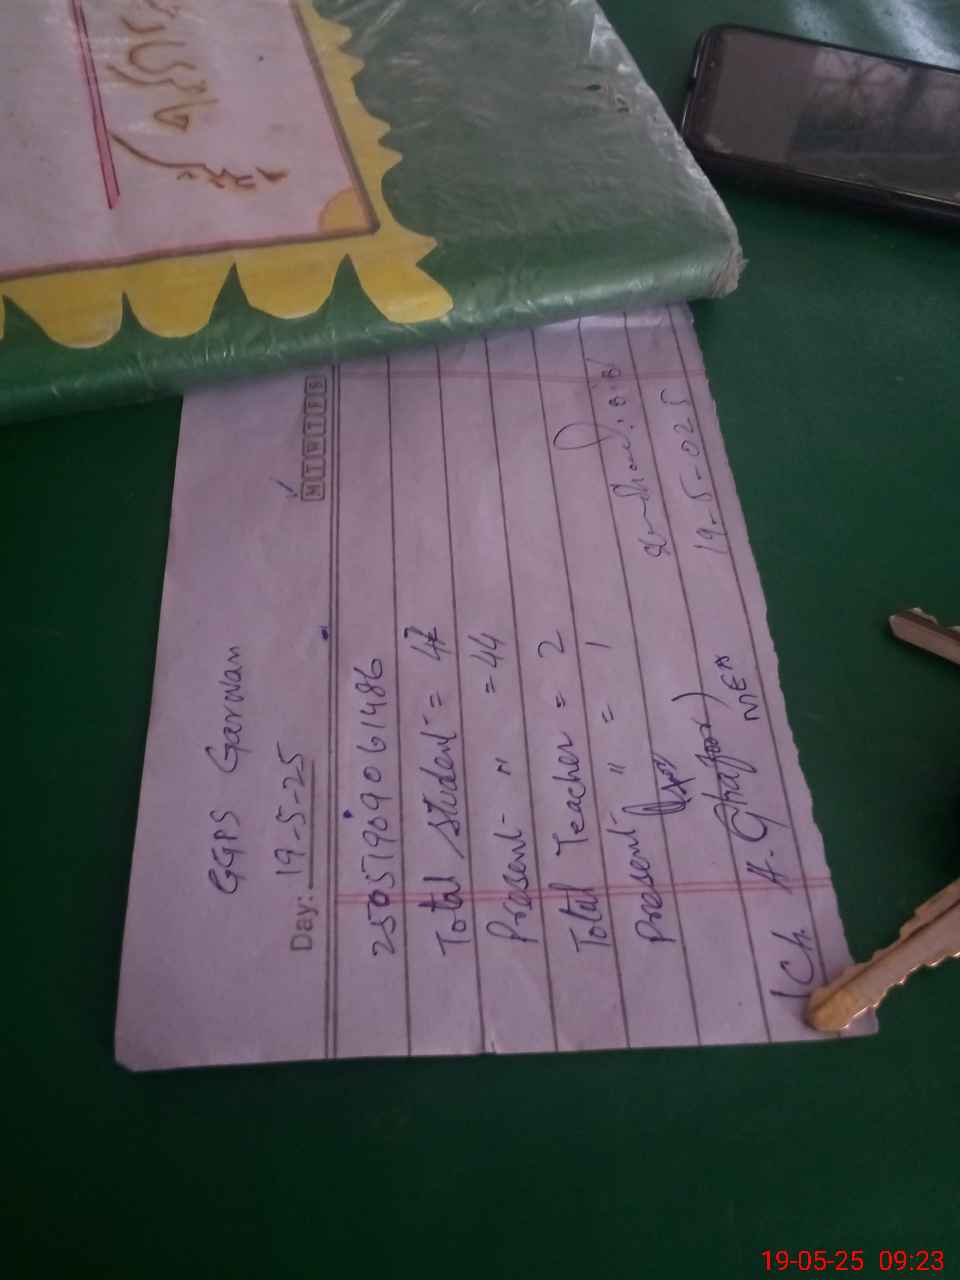 GGPS Garwan
Day: 19-5-25
M T W T F S
25051909061486
Total student = 47
Present " = 44
Total Teacher = 2
Present " = 1
19-5-025
(Ch. A. Ghafoor)
MEA
19-05-25 09:23